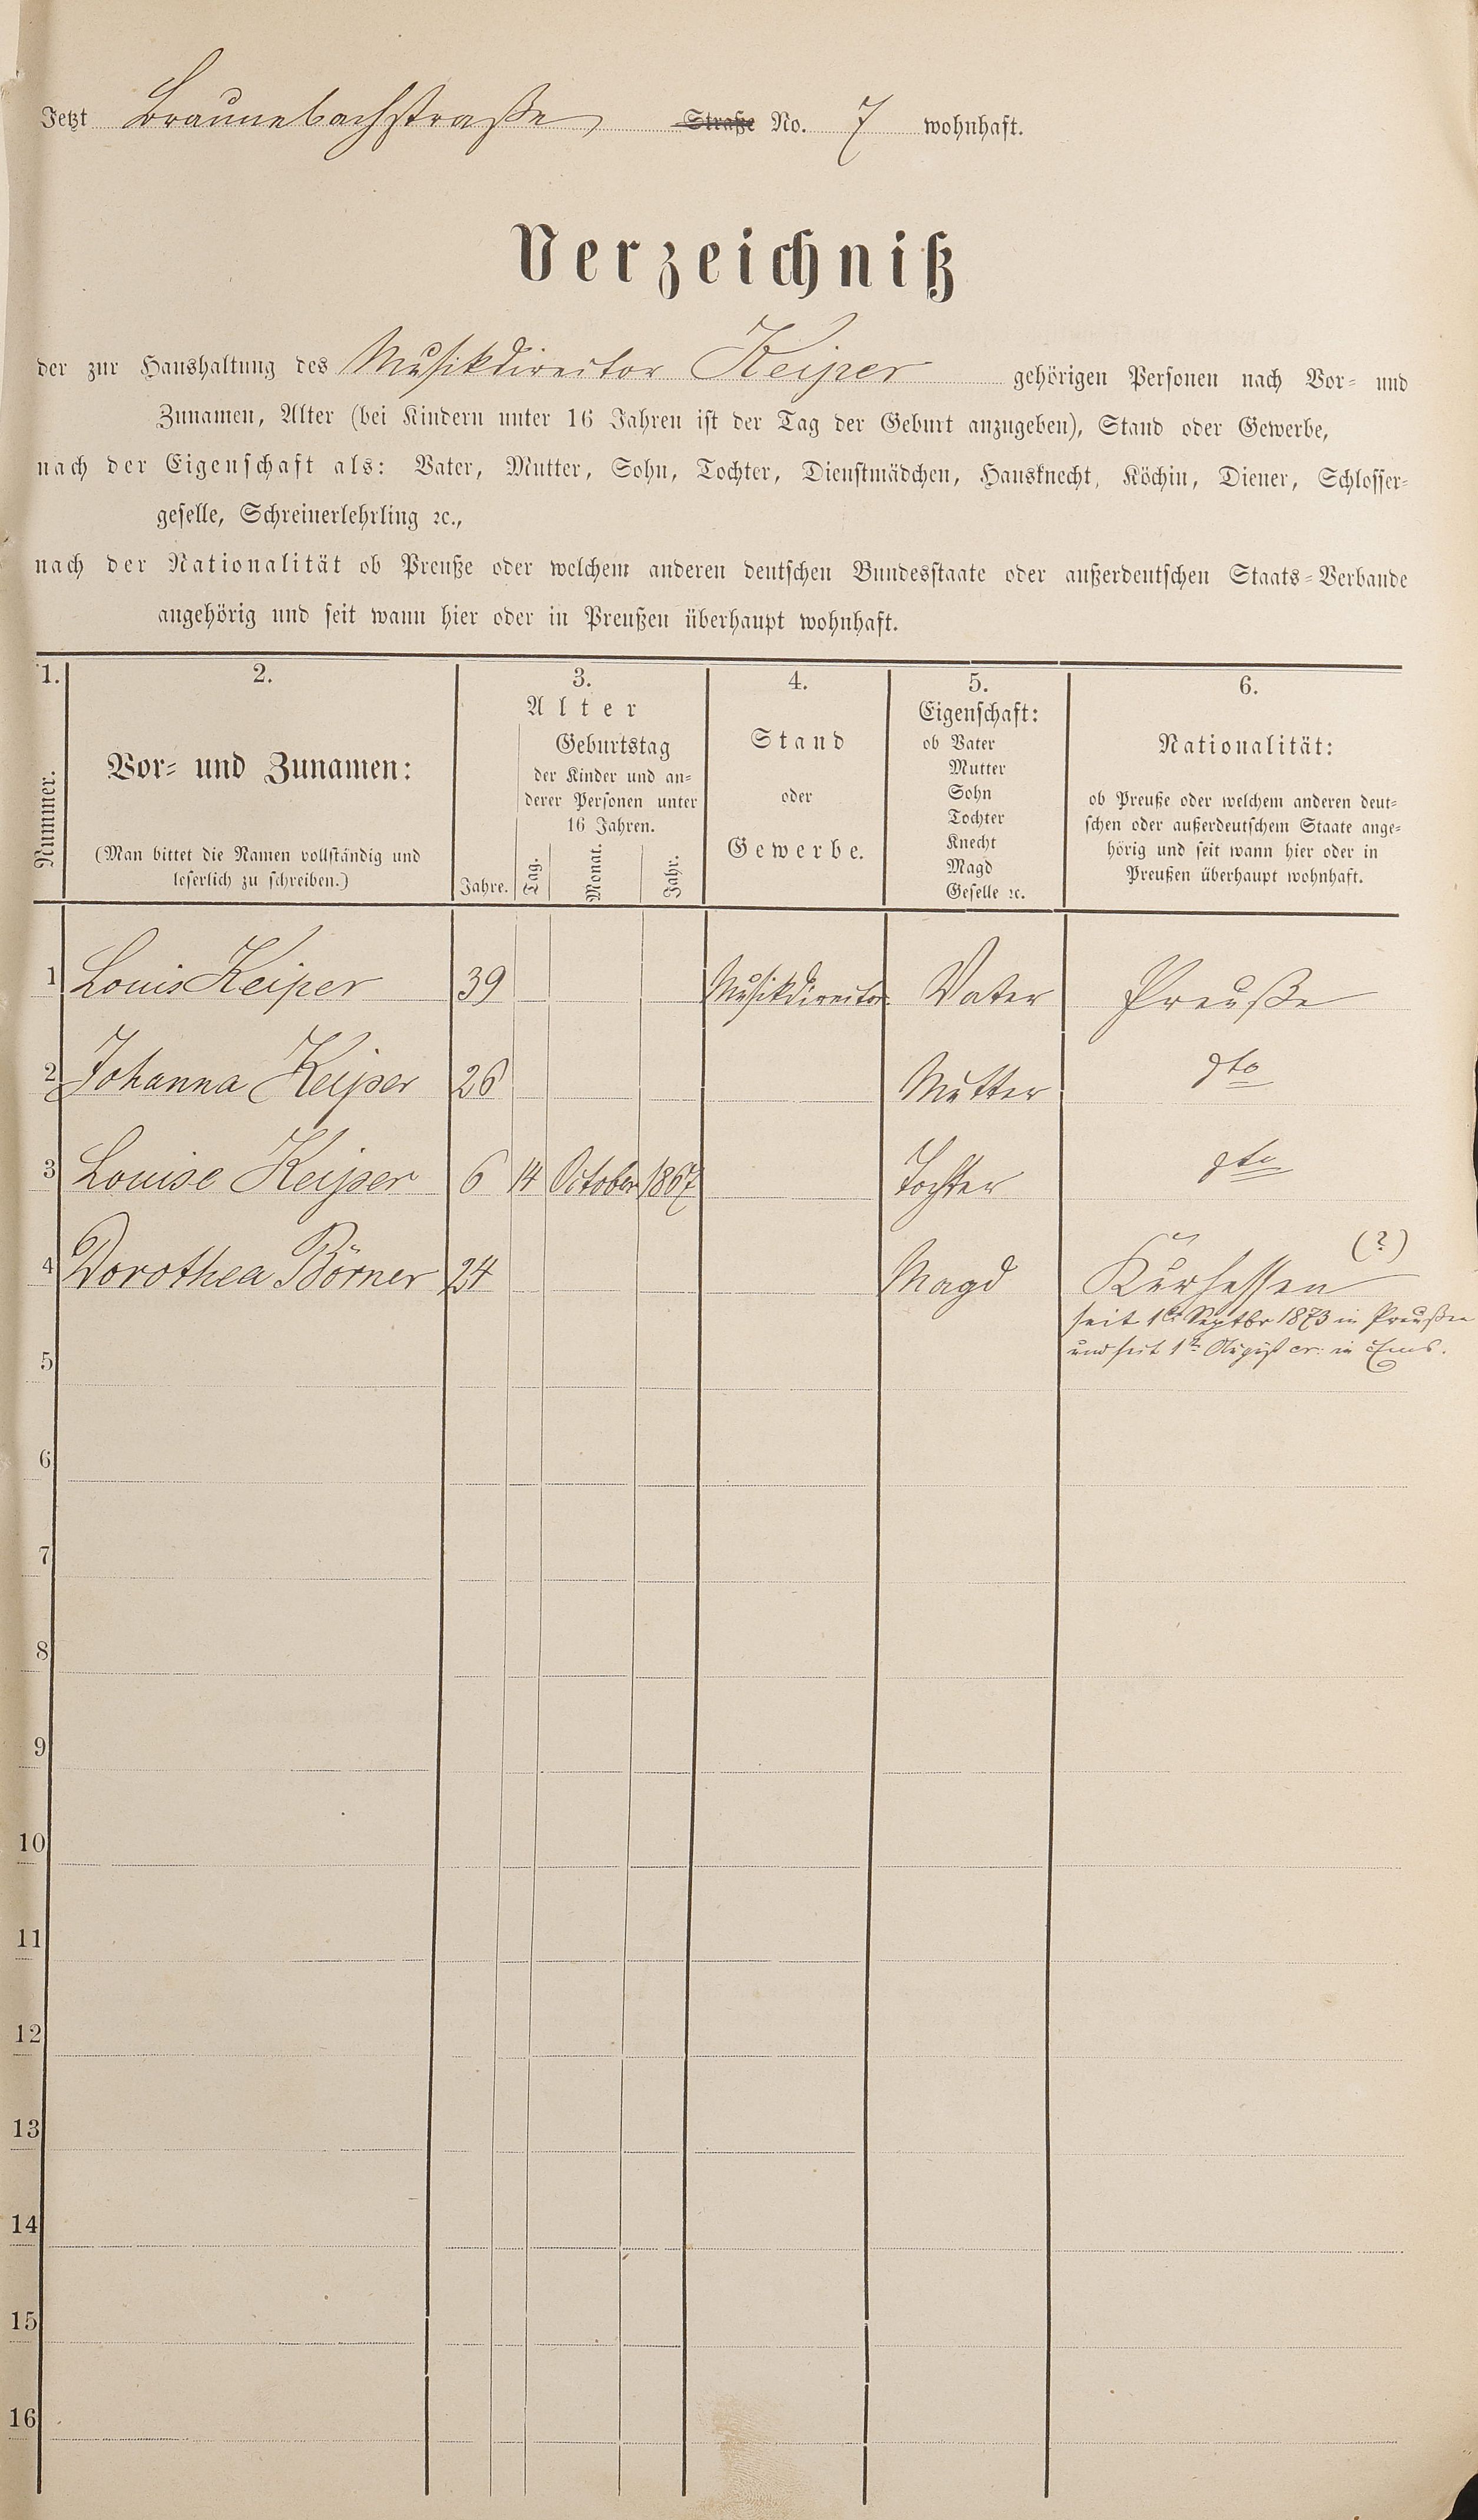 Jetzt Braunebachstraße Straße No. 7 wohnhaft.
Verzeichniß
der zur Haushaltung des Musikdirector Keiper gehörigen Personen nach Vor- und
Zunamen, Alter (bei Kindern unter 16 Jahren ist der Tag der Geburt anzugeben), Stand oder Gewerbe,
nach der Eigenschaft als: Vater, Mutter, Sohn, Tochter, Dienstmädchen, Hausknecht, Köchin, Diener, Schlosser-
geselle, Schreinerlehrling ꝛc.,
nach der Nationalität ob Preuße oder welchem anderen deutschen Bundesstaate oder außerdeutschen Staats-Verbande
angehörig und seit wann hier oder in Preußen überhaupt wohnhaft.
1. 2. 3. 4. 5. 6.
Nummer.
Vor- und Zunamen:
(Man bittet die Namen vollständig und
leserlich zu schreiben.)
Alter
Jahre.
Geburtstag
der Kinder und an-
derer Personen unter
16 Jahren.
Tag. Monat. Jahr.
Stand
oder
Gewerbe.
Eigenschaft:
ob Vater
Mutter
Sohn
Tochter
Knecht
Magd
Geselle ꝛc.
Nationalität:
ob Preuße oder welchem anderen deut-
schen oder außerdeutschem Staate ange-
hörig und seit wann hier oder in
Preußen überhaupt wohnhaft.
1 Louis Keiper 39 Musikdirector Vater Preuße
2 Johanna Keiper 26 Mutter dto
3 Louise Keiper 6 14 October 1867 Tochter dto
4 Dorothea Börner 24 Magd Kurhessen (?)
seit 1ten Septbr 1873 in Preußen
und seit 1ten August cr. in Ems.
5
6
7
8
9
10
11
12
13
14
15
16